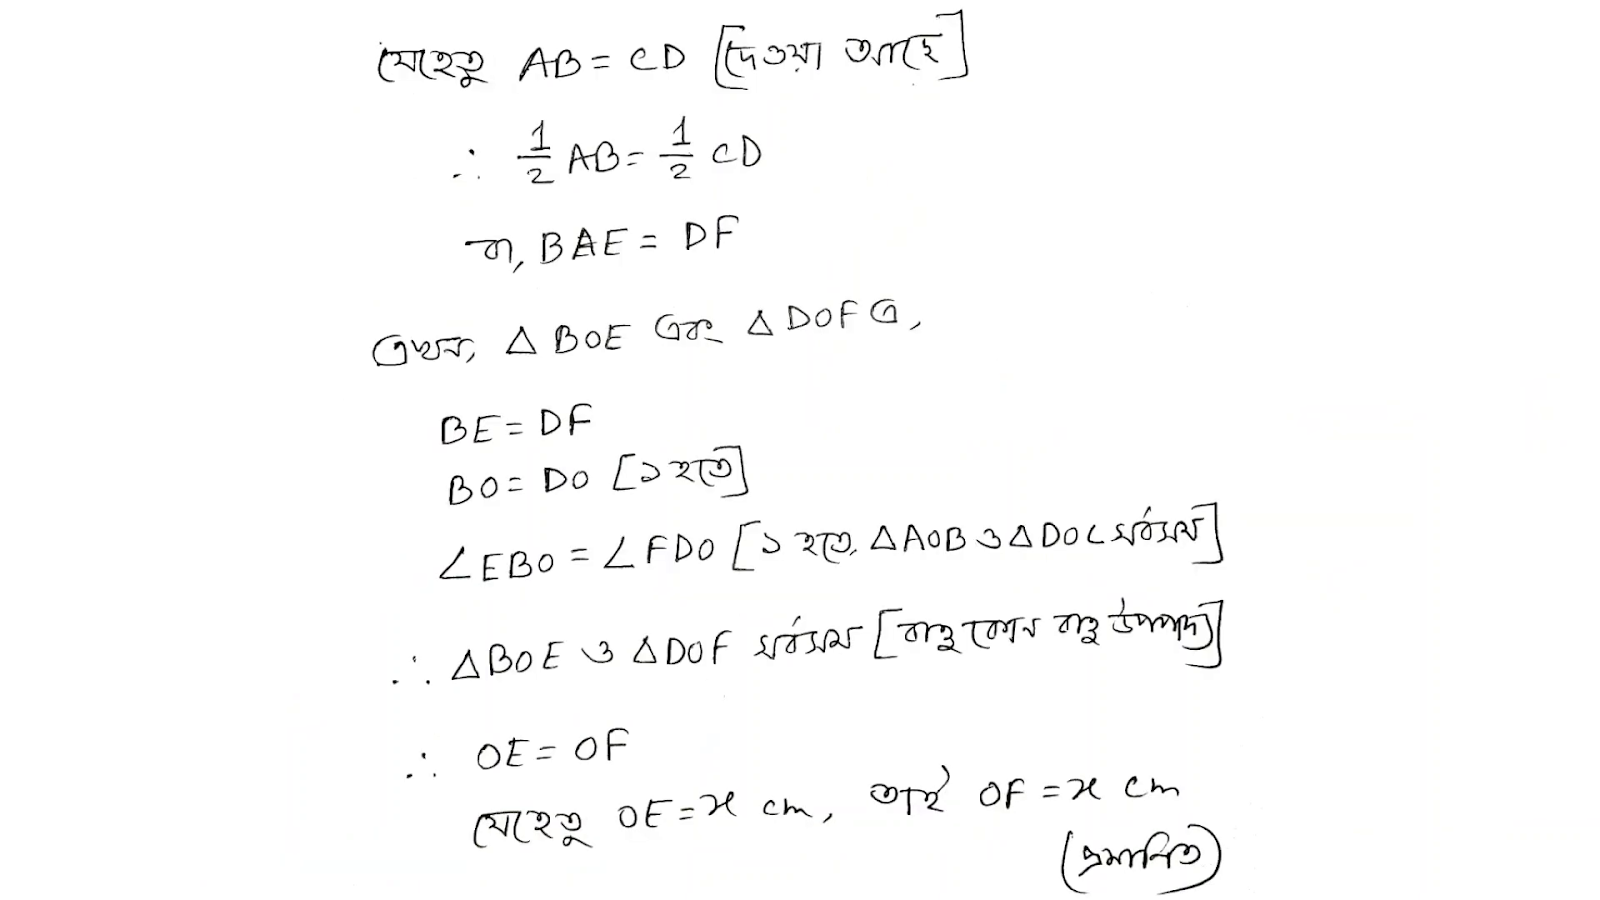 যেহেতু AB = CD [দেওয়া আছে]
∴ 1/2 AB = 1/2 CD
বা, BAE = DF
এখন, △ BOE এবং △ DOF এ,
BE = DF
BO = DO [১ হতে]
∠EBO = ∠FDO [১ হতে, △AOB ও △DOC সর্বসম]
∴ △BOE ও △DOF সর্বসম [বাহু কোন বাহু উপপাদ্য]
∴ OE = OF
যেহেতু OE = x cm, তাই OF = x cm
(প্রমাণিত)